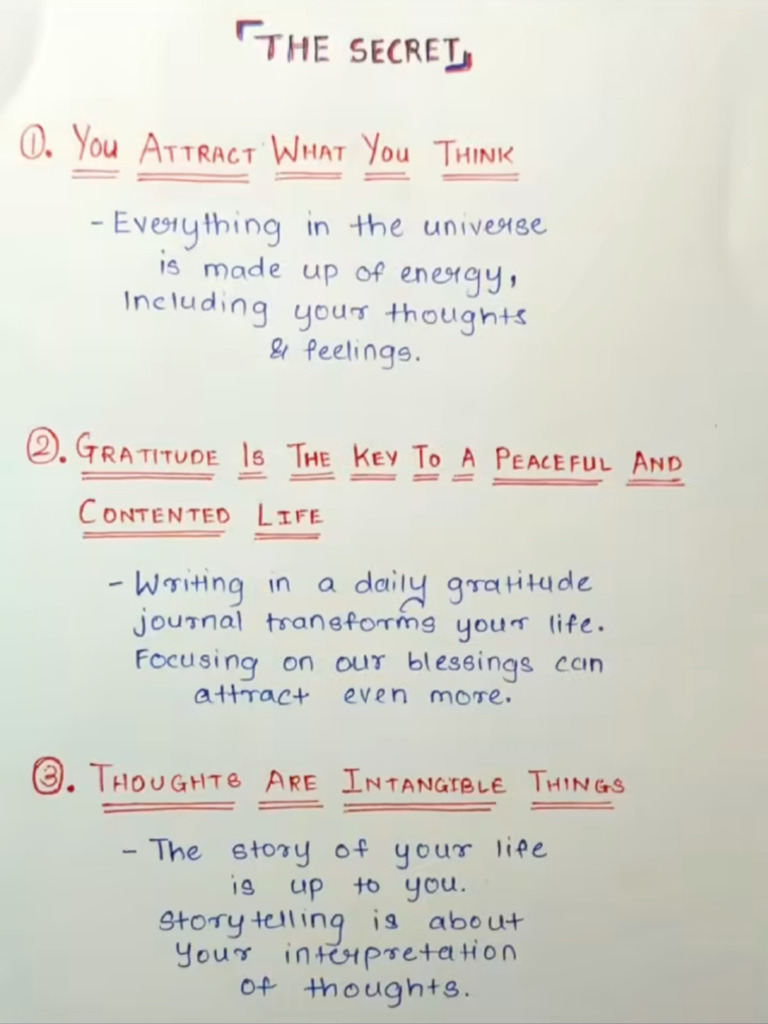 「THE SECRET」
①. YOU ATTRACT WHAT YOU THINK
- Everything in the universe
is made up of energy,
Including your thoughts
& feelings.
②. GRATITUDE IS THE KEY TO A PEACEFUL AND
CONTENTED LIFE
- Writing in a daily gratitude
journal transforms your life.
Focusing on our blessings can
attract even more.
③. THOUGHTS ARE INTANGIBLE THINGS
- The story of your life
is up to you.
Storytelling is about
Your interpretation
of thoughts.